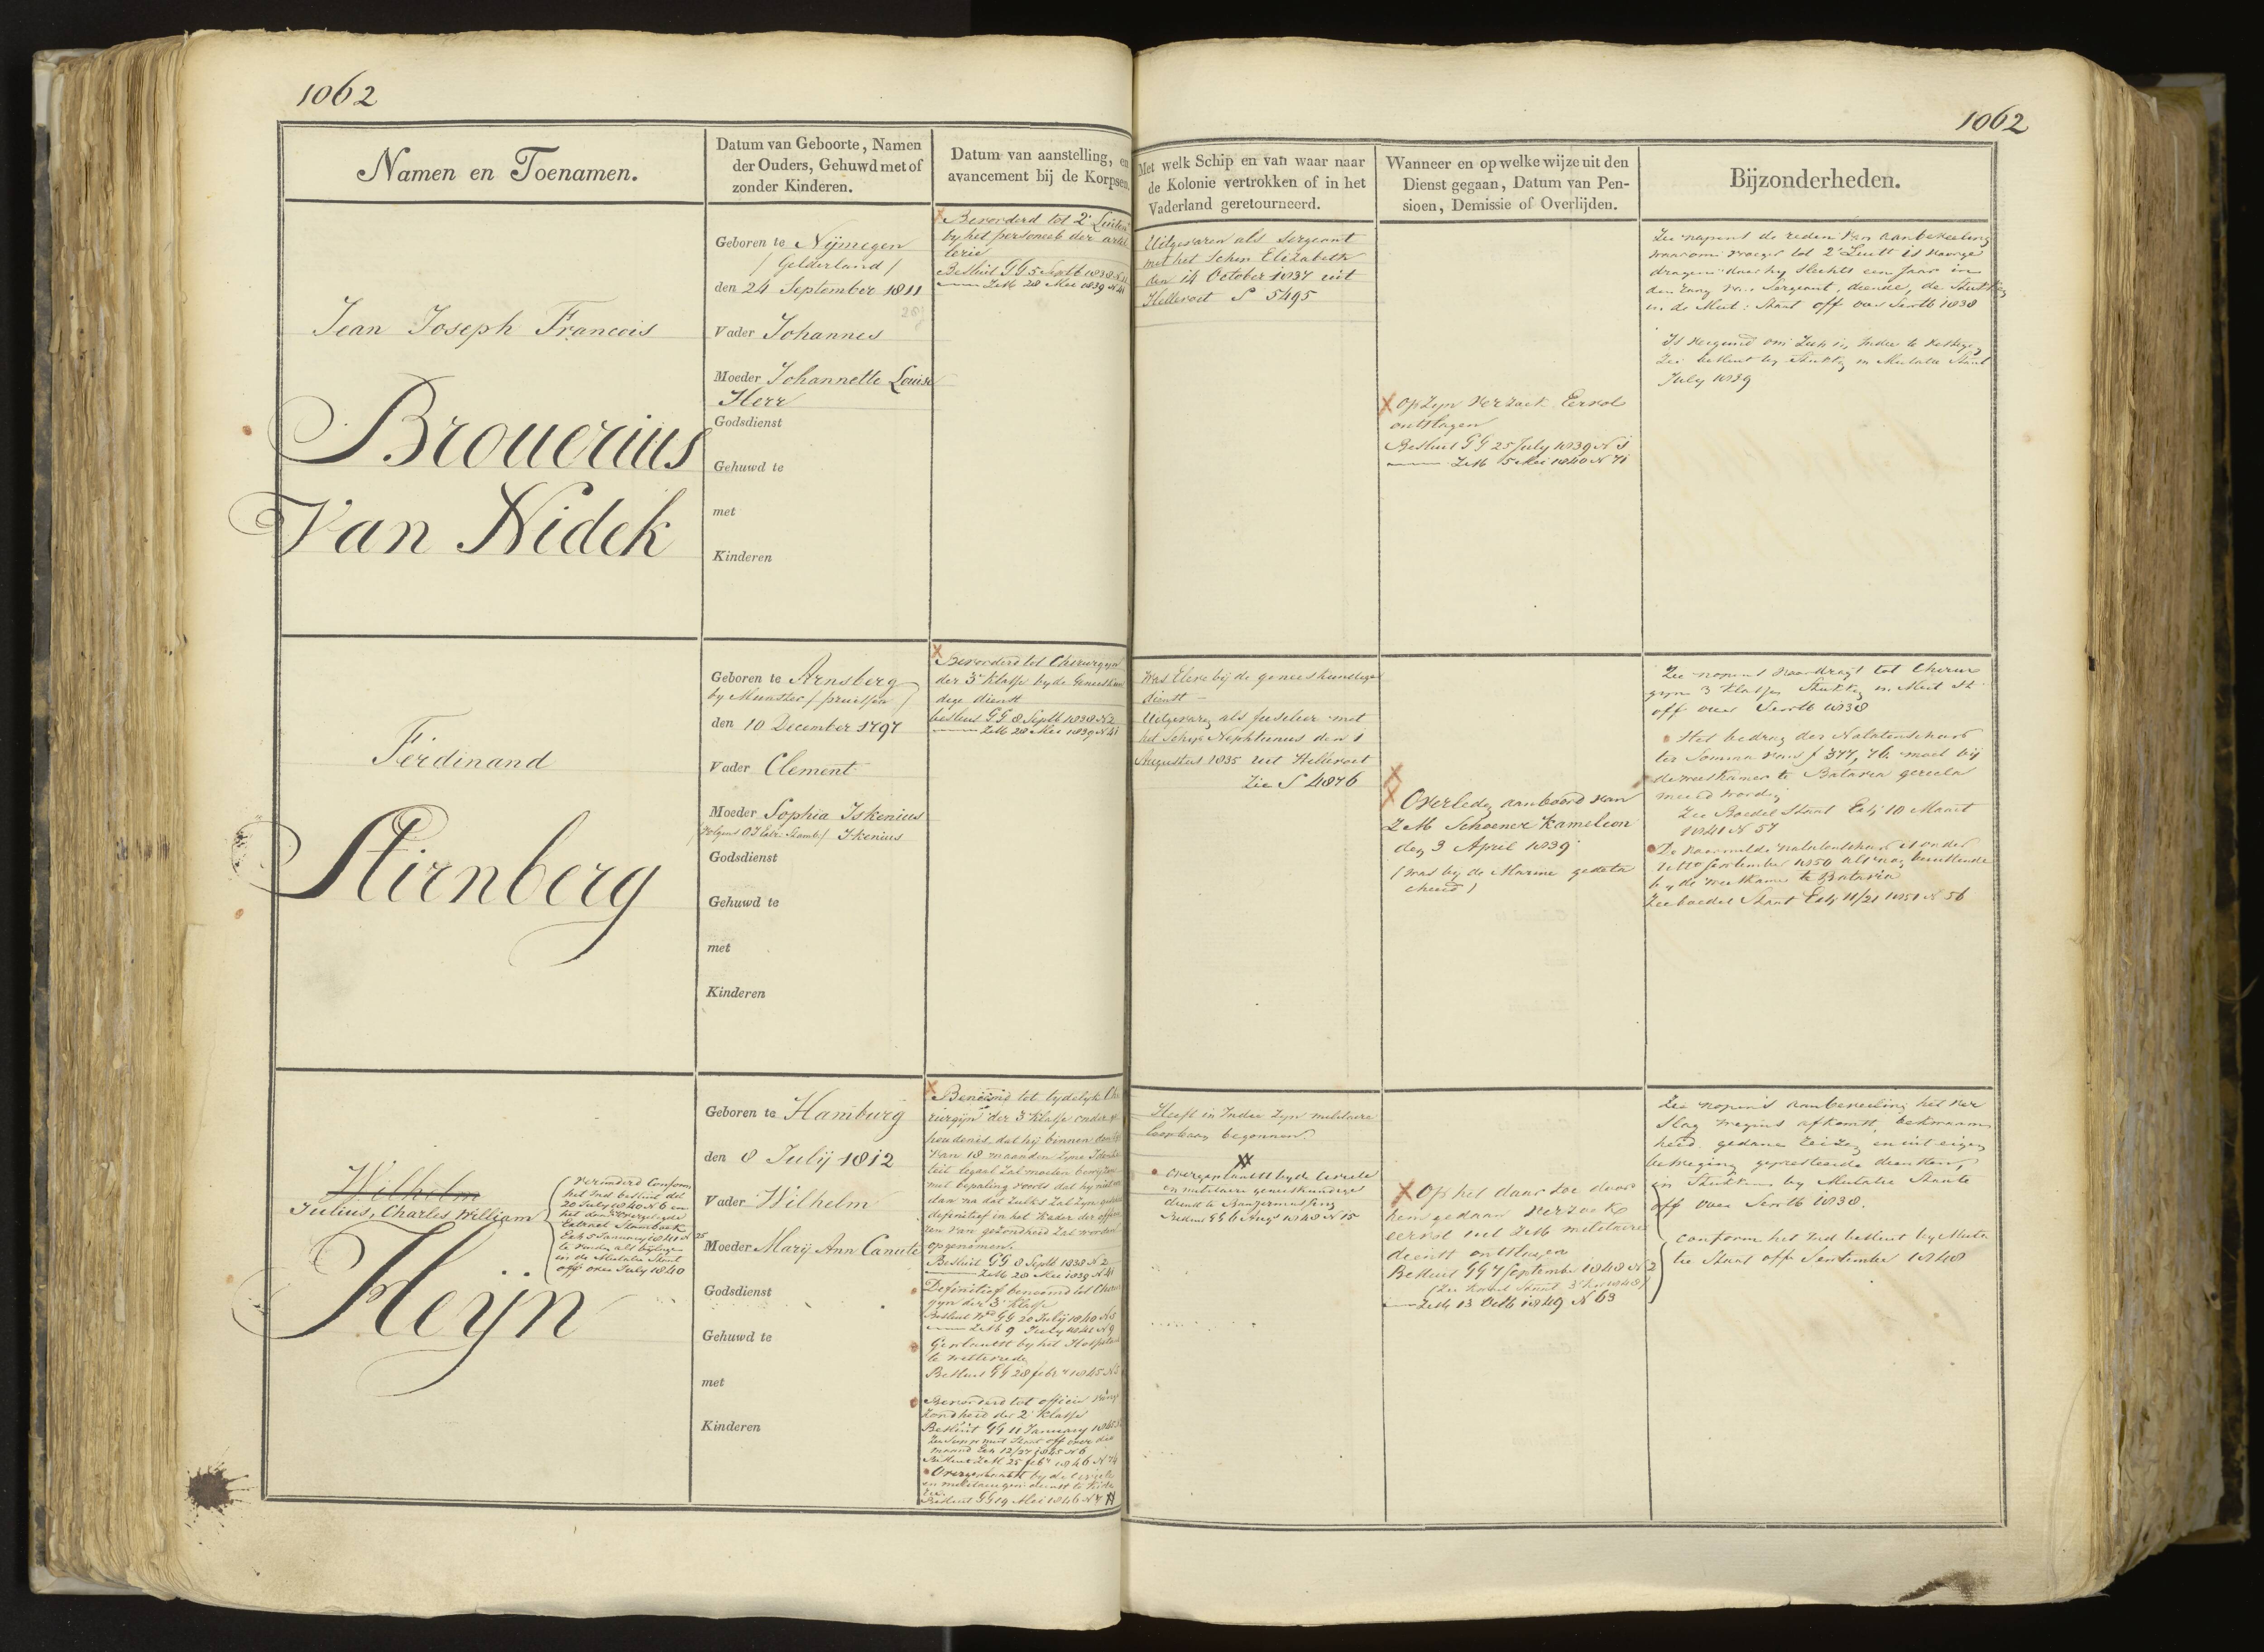 1062
1062
Namen en Toenamen.
Datum van Geboorte, Namen
der Ouders, Gehuwd met of
zonder Kinderen.
Datum van aanstelling, en
avancement bij de Korpsen.
Met welk Schip en van waar naar
de Kolonie vertrokken of in het
Vaderland geretourneerd.
Wanneer en op welke wijze uit den
Dienst gegaan, Datum van Pen-
sioen, Demissie of Overlijden.
Bijzonderheden.
Jean Joseph Francois
Brouerius
Van Nidek
Geboren te Nijmegen
/ Gelderland /
den 24 September 1811
Vader Johannes
Moeder Johannette Louise
Herr
Godsdienst
Gehuwd te
met
Kinderen
Bevorderd tot 2e Luiten
by het personeel der artil
lerie
Besluit GG 5 Septb 1838
ZM 28 Mei 1839 N 41
Uitgevaren als sergeant
met het schip Elizabeth
den 14 October 1837 uit
Hellevoet S 5495
Op zyn verzoek Eervol
ontslagen
Besluit GG 25 July 1839 N 1
ZM 5 Mei 1840 N 71
Zie nopens de reden van aanbeveling
waarom vroeger tot 2e Luitt is voorge
dragen daar hy slechts een Jaar in
den rang van Sergeant, diende, de Stukken
in de Mut: Staat off over Septb 1838
Is vergund om zich in Indie te vestigen
Zie besluit by Stukken en Mutatie Staat
July 1839
Ferdinand
Stirnberg
Geboren te Arnsberg
by Munster / pruissen /
den 10 December 1797
Vader Clement
Moeder Sophia Iskenius
Ikenius
Godsdienst
Gehuwd te
met
Kinderen
Bevorderd tot Chirurgyn
der 3e Klasse by de Geneeskun
dige dienst
besluit GG 8 Septb 1838 N 2
ZM 28 Mei 1839 N 41
Was Eleve bij de geneeskundige
dienst
Uitgevaren als fuselier met
het schip Nephtunus den 1
Augustus 1835 uit Hellevoet
Zie S 4876
Overleden aan boord van
ZM Schoener Kameleon
den 3 April 1839
(was by de Marine gedeta
cheerd)
Zie nopens voordragt tot Chirur
gyn 3 Klasse Stukken in Mut St
off over Septb 1838
Het bedrag der Nalatenschap
ter Somma van f 377,76 moet bij
de weeskamer te Batavia gerecla
meerd worden
Zie Boedel Staat Exh 10 Maart
1841 N 57
De voormelde nalatenschap is onder
ulto September 1850 als nog berustende
by de weeskamer te Batavia
Zie boedel Staat Exh 11/21 1851 N 56
Wilhelm
Julius, Charles, William
Veranderd Conform
het Ind besluit dd
20 July 1840 N 6 en
het daarby overgelegde
Extract Stamboek
Exh 5 January 1841 N 25
te vinden als bijlage
in de Mutatie Staat
off over July 1840
Heijn
Geboren te Hamburg
den 8 Julij 1812
Vader Wilhelm
Moeder Marij Ann Canute
Godsdienst
Gehuwd te
met
Kinderen
Benoemd tot tydelyk Chi
rurgijn der 3e Klasse onder ge
houdenis dat hij binnen den tyd
van 18 maanden zyne Identi
teit legaal zal moeten bewyzen
met bepaling voorts dat hy niet eer
dan na dat zulks zal zyn geschied
definitief in het Kader der offici
ren van gezondheid zal worden
opgenomen.
Besluit GG 8 Septb 1838 N 2
ZM 28 Mei 1839 N 41
Definitief benoemd tot Chirur
gyn der 3e Klasse
Besluit GG 20 Julij 1840 N 5
ZM 9 July 1841 N 9
Geplaatst by het Hospitaal
te Weltevreden
Besluit GG 28 febr 1845 N 5
Bevorderd tot officier van ge
zondheid der 2e Klasse
Besluit GG 11 January 1845
maand Exh 12/27 1845 N 6
Besluit ZM 25 febr 1846 N 74
Overgeplaatst by de civiele
Besluit GG 19 Mei 1846 N 7
Heeft in Indie zyn militaire
loopbaan begonnen.
overgeplaatst by de Civiele
en militaire geneeskundige
dienst te Banjermassing
Besluit GG 6 Augs 1848 N 15
Op het daar toe door
hem gedaan verzoek
eervol uit ZM militaire
dienst ontslagen
Besluit GG 7 September 1848 N 2
ZM 13 Octb 1849 N 63
Zie nopens aanbeveling het ver
slag wegens afkomst, bekwaam
heid, gedane reizen, en uit eigen
beweging gepresteerde diensten,
in Stukken by Mutatie Staat
off over Septb 1838.
Conform het Ind besluit by Muta
tie Staat off September 1848